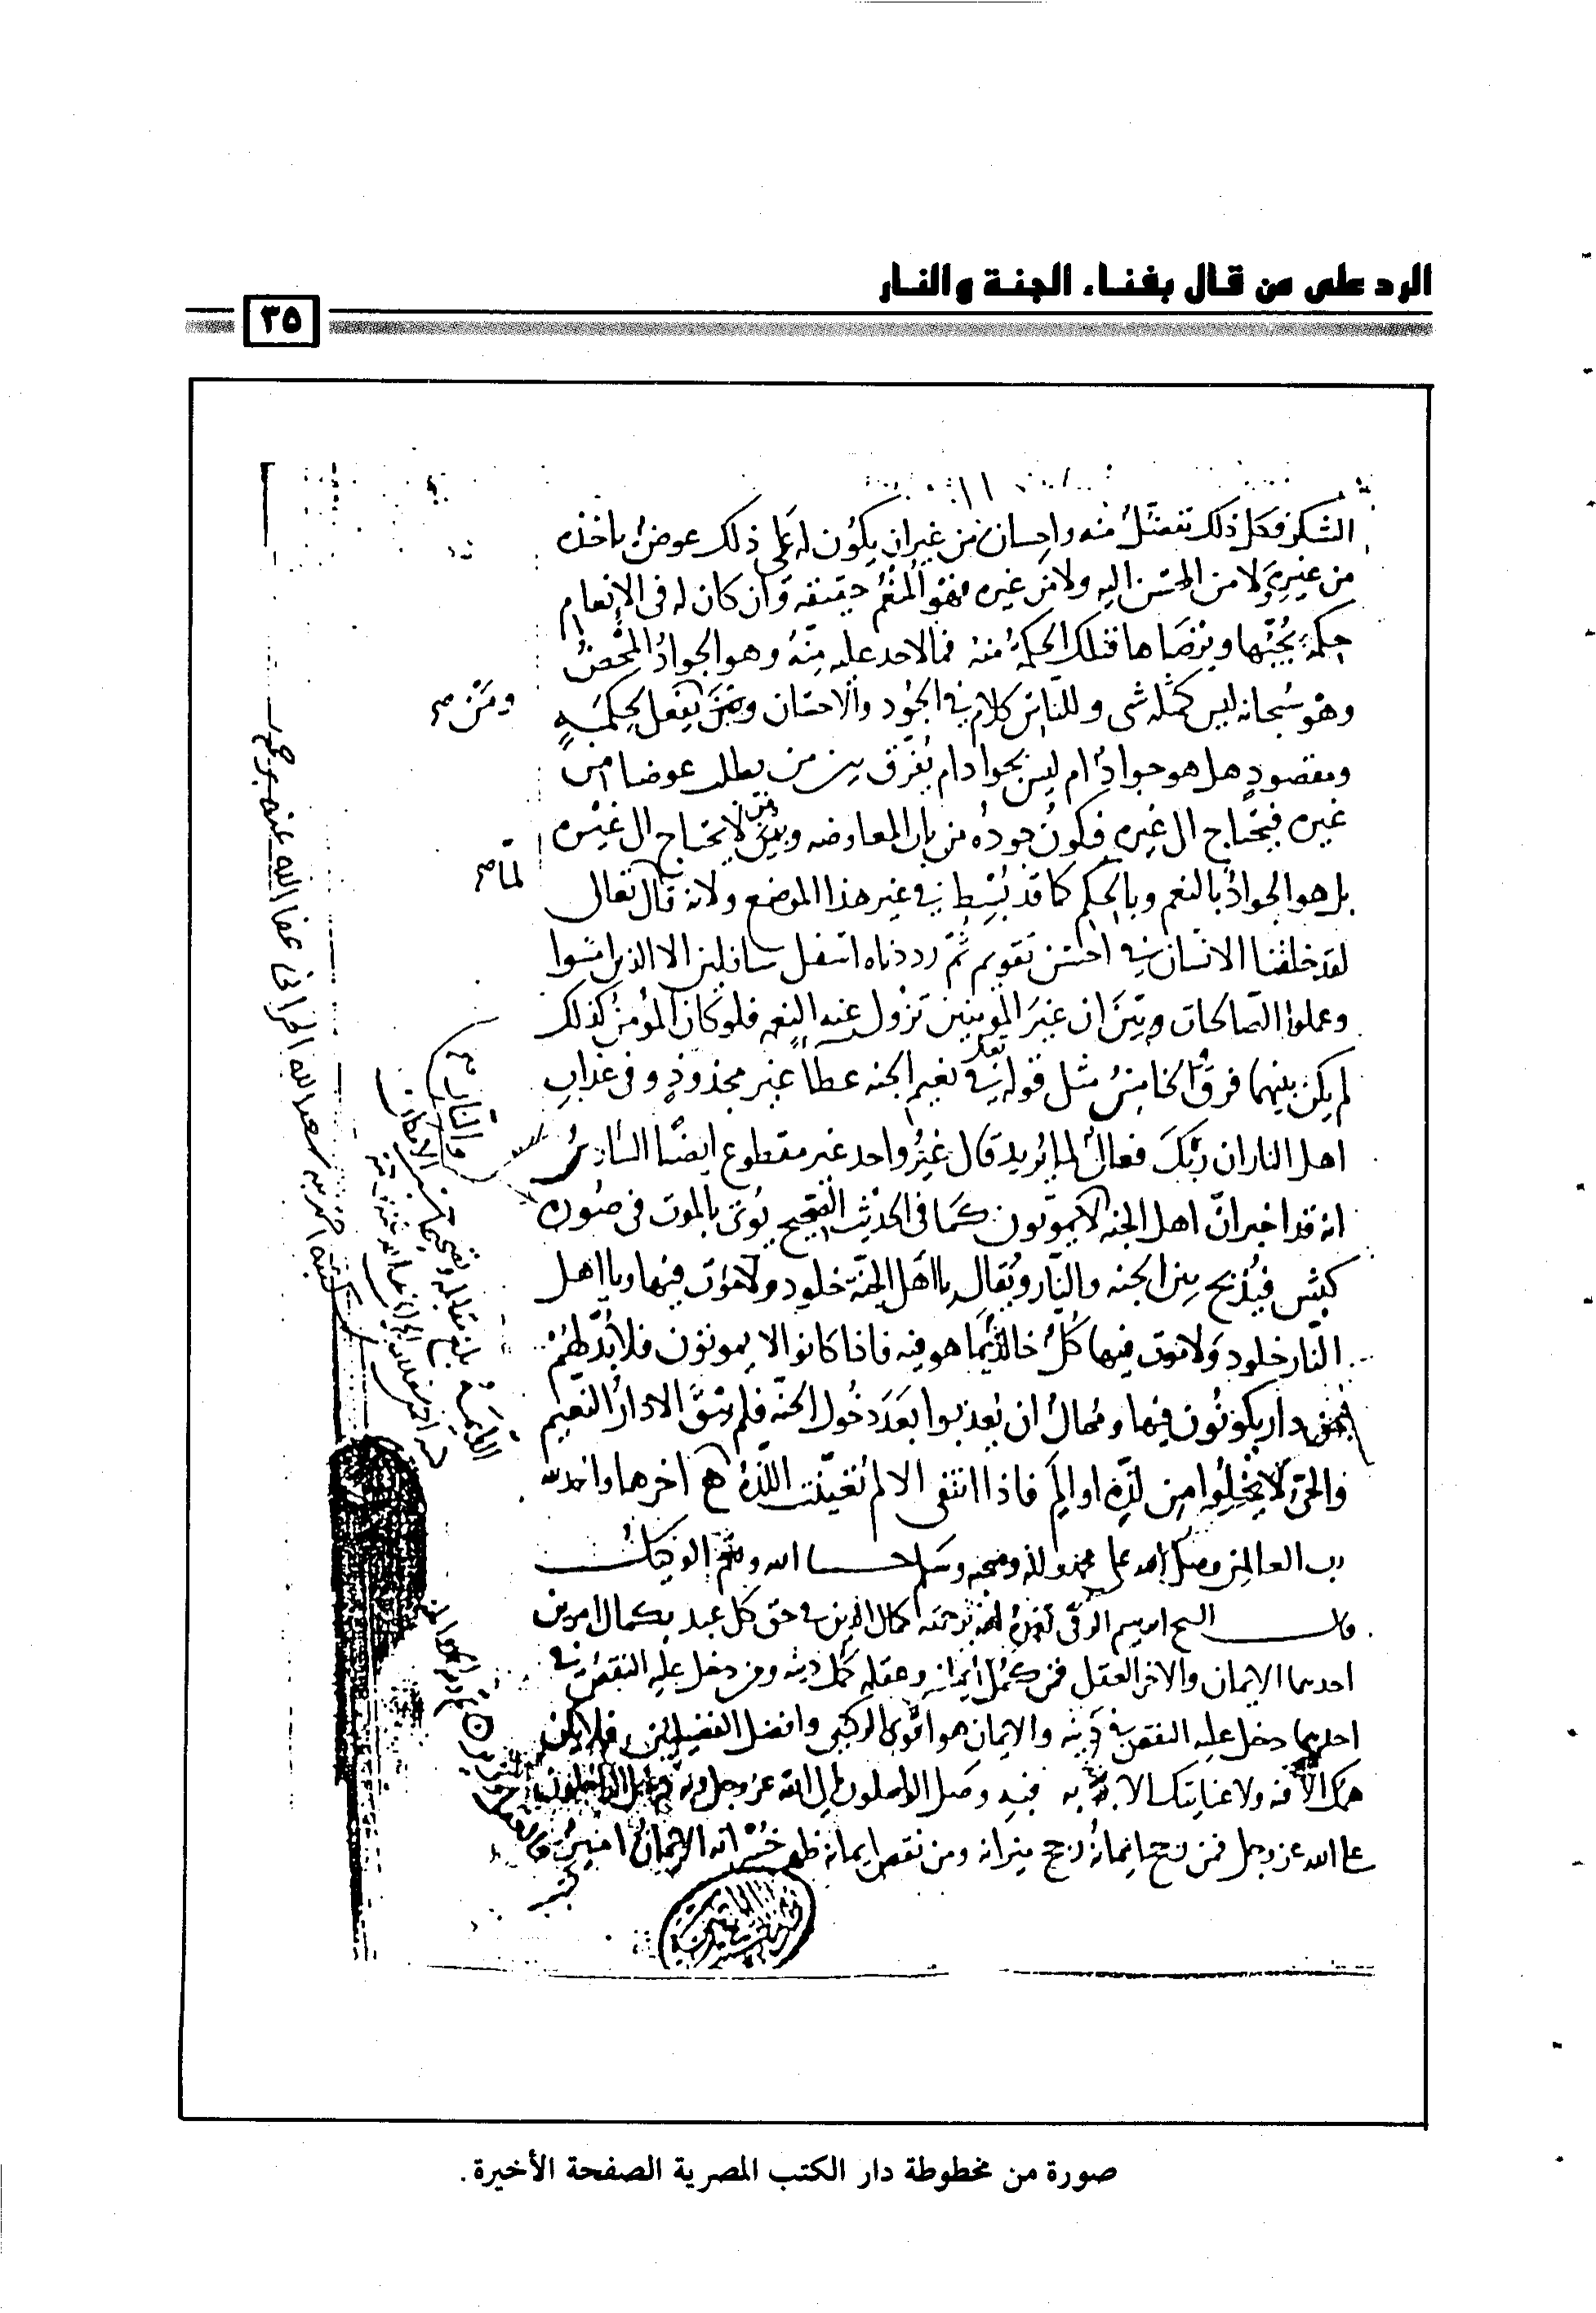 الرد على من قال بفناء الجنة والنار
٣٥
الشكر فكل ذلك تفضل منه واحسان من غير ان يكون له على ذلك عوض ياخذه
من غيره لا من المحسن اليه ولا من غيره فهو المنعم حقيقه وان كان له فى الانعام
حكمة يحبها ويرضاها فتلك الحكمة منه فما لاحد عليه منه وهو الجواد المحض
وهو سبحانه ليس كمثله شى وللناس كلام فى الجود والاحسان ومن يفعل لحكمة
ومن صح
ومقصود هل هو جواد ام ليس بجواد ام يفرق بين من يطلب عوضا من
غيره فيحتاج الى غيره فيكون جوده من باب المعاوضه وبين من لا يحتاج الى غيره
بل هو الجواد بالنعم وبالحكم كما قد بسط فى غير هذا الموضع ولانه قال تعالى
لقد خلقنا الانسان فى احسن تقويم ثم رددناه اسفل سافلين الا الذين امنوا
وعملوا الصالحات وبين ان غير المومنين تزول عنه النعم فلو كان المؤمن كذلك
لم يكن بينهما فرق الخامس مثل قوله فى نعيم الجنه عطا غير مجذوذ وفى عذاب
اهل النار ان ربك فعال لما يريد قال غير واحد غير مقطوع ايضا السادس
والنار صح
انه قد اخبر ان اهل الجنه لا يموتون كما فى الحديث الصحيح يوتى بالموت فى صوره
كبش فيذبح بين الجنه والنار ويقال يا اهل الجنة خلود ولا موت فيها ويا اهل
النار خلود ولا موت فيها كل خالد فيما هو فيه فاذا كانوا لا يموتون فلا بد لهم
من دار يكونون فيها ومحال ان يعذبوا بعد دخول الجنه فلم يبق الا دار النعيم
والحى لا يخلوا من لذة او الم فاذا انتفى الالم تعينت اللذة اخرها والحمد لله
رب العالمين وصلى الله على محمد واله وصحبه وسلم حسبنا الله ونعم الوكيل
قال الشيخ ابرهيم الرقى تغمده الله برحمته كمال الدين فى حق كل عبد بكمال امرين
احدهما الايمان والاخر العقل فمن كمل ايمانه وعقله كمل دينه ومن دخل عليه النقص فى
احدهما دخل عليه النقص فى دينه والايمان هو اقوى الركنين وافضل الفضيلتين فلا يكن
همك الا فيه ولا عنايتك الا به فبه وصل الواصلون الى الله عز وجل وبه
على الله عز وجل فمن رجح ايمانه رجح ميزانه ومن نقص ايمانه ظهر خسرانه الايمان
صورة من مخطوطة دار الكتب المصرية الصفحة الأخيرة.